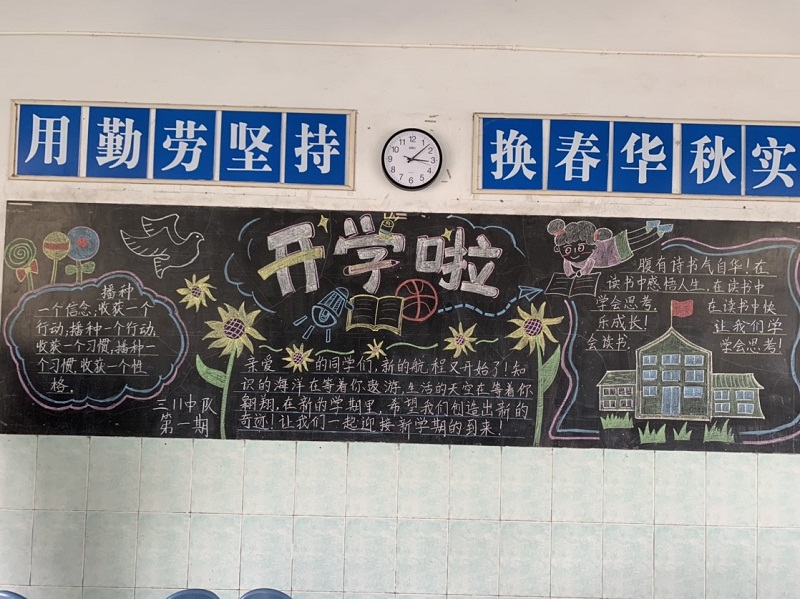 用勤劳坚持
换春华秋实
开学啦
播种
一个信念,收获一个
行动;播种一个行动,
收获一个习惯,播种一
个习惯,收获一个性
格。
三11中队
第一期
亲爱的同学们,新的航程又开始了!知
识的海洋在等着你遨游,生活的天空在等着你
翱翔,在新的学期里,希望我们创造出新的
奇迹!让我们一起迎接新学期的到来!
腹有诗书气自华!在
读书中感悟人生,在读书中
学会思考,在读书中快
乐成长!让我们学
会读书,学会思考!